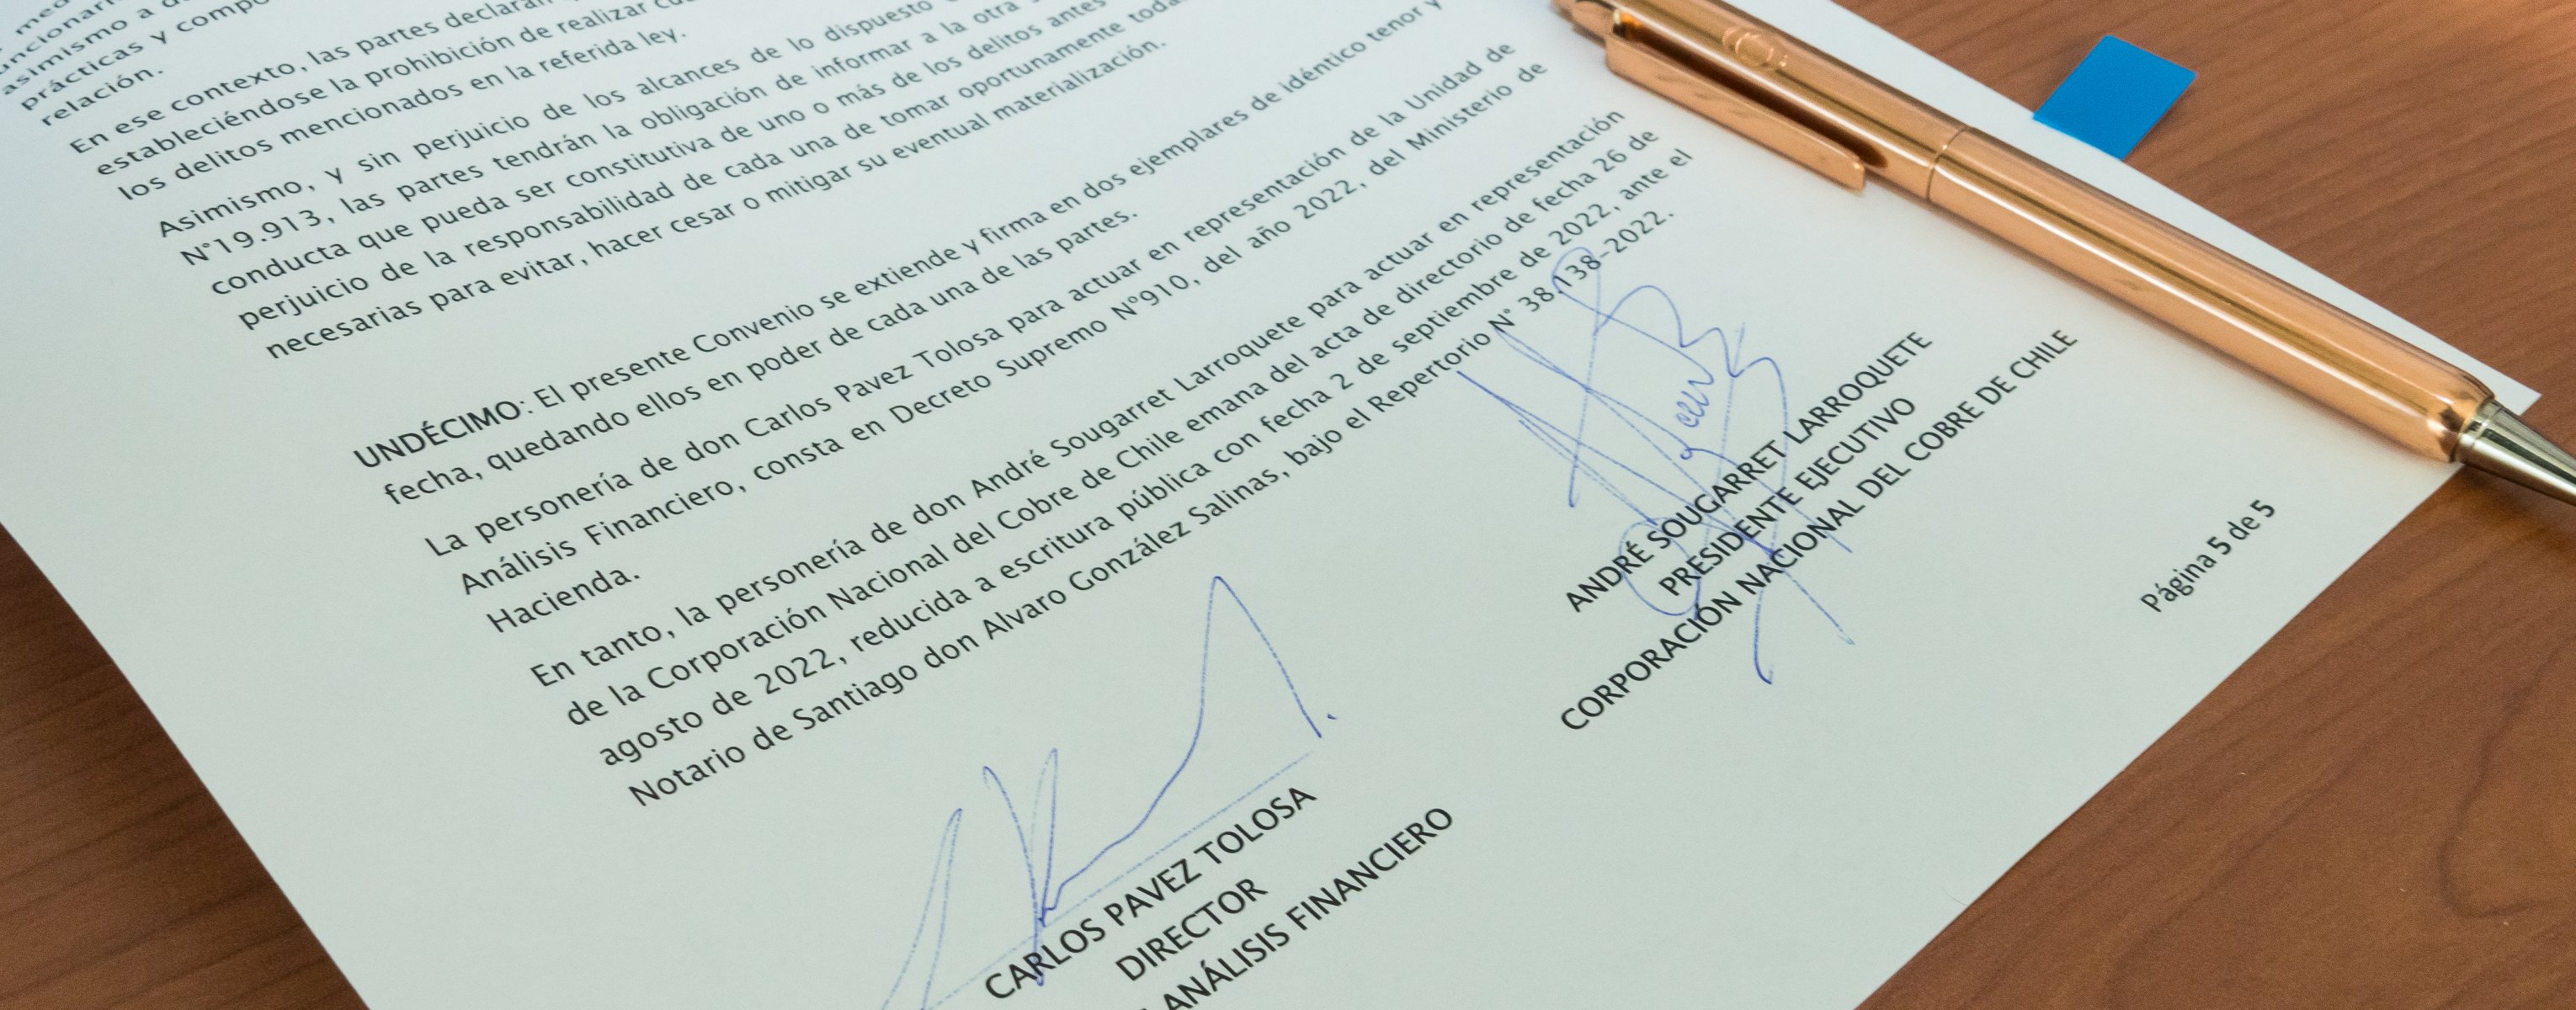 asimismo a
prácticas y
relación.
En ese contexto, las partes declaran
estableciéndose la prohibición de realizar
los delitos mencionados en la referida ley.
Asimismo, y sin perjuicio de los alcances de lo dispuesto
N°19.913, las partes tendrán la obligación de informar a la otra
conducta que pueda ser constitutiva de uno o más de los delitos antes
perjuicio de la responsabilidad de cada una de tomar oportunamente
necesarias para evitar, hacer cesar o mitigar su eventual materialización.
UNDÉCIMO: El presente Convenio se extiende y firma en dos ejemplares de idéntico tenor y
fecha, quedando ellos en poder de cada una de las partes.
La personería de don Carlos Pavez Tolosa para actuar en representación de la Unidad de
Análisis Financiero, consta en Decreto Supremo N°910, del año 2022, del Ministerio de
Hacienda.
En tanto, la personería de don André Sougarret Larroquete para actuar en representación
de la Corporación Nacional del Cobre de Chile emana del acta de directorio de fecha 26 de
agosto de 2022, reducida a escritura pública con fecha 2 de septiembre de 2022, ante el
Notario de Santiago don Alvaro González Salinas, bajo el Repertorio N° 38.138-2022.
CARLOS PAVEZ TOLOSA
DIRECTOR
ANÁLISIS FINANCIERO
ANDRÉ SOUGARRET LARROQUETE
PRESIDENTE EJECUTIVO
CORPORACIÓN NACIONAL DEL COBRE DE CHILE
Página 5 de 5